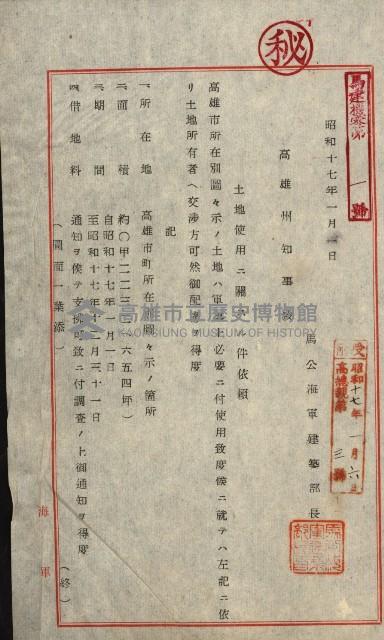 秘
馬建機密第一號
昭和十七年一月一日
馬公海軍建築部長
高雄州知事殿
土地使用ニ關スル件依頼
高雄市所在別圖ニ示ス土地ハ軍事上必要ニ付使用致度候ニ就テハ左記ニ依
リ土地所有者ヘ交渉方可然御配慮ヲ得度
記
一、所在地 高雄市町所在別圖ニ示ス箇所
二、面積 約〇甲二二三
六五四坪)
三、期間 自昭和十七年一月一日
至昭和十七年 月三十一日
四、借地料 通知ヲ俟テ支拂可致ニ付調査ノ上御通知ヲ得度
(圖面一葉添)
(終)
受
昭和十七年一月六日
高總親第三號
海軍
高雄市立歷史博物館
KAOHSIUNG MUSEUM OF HISTORY